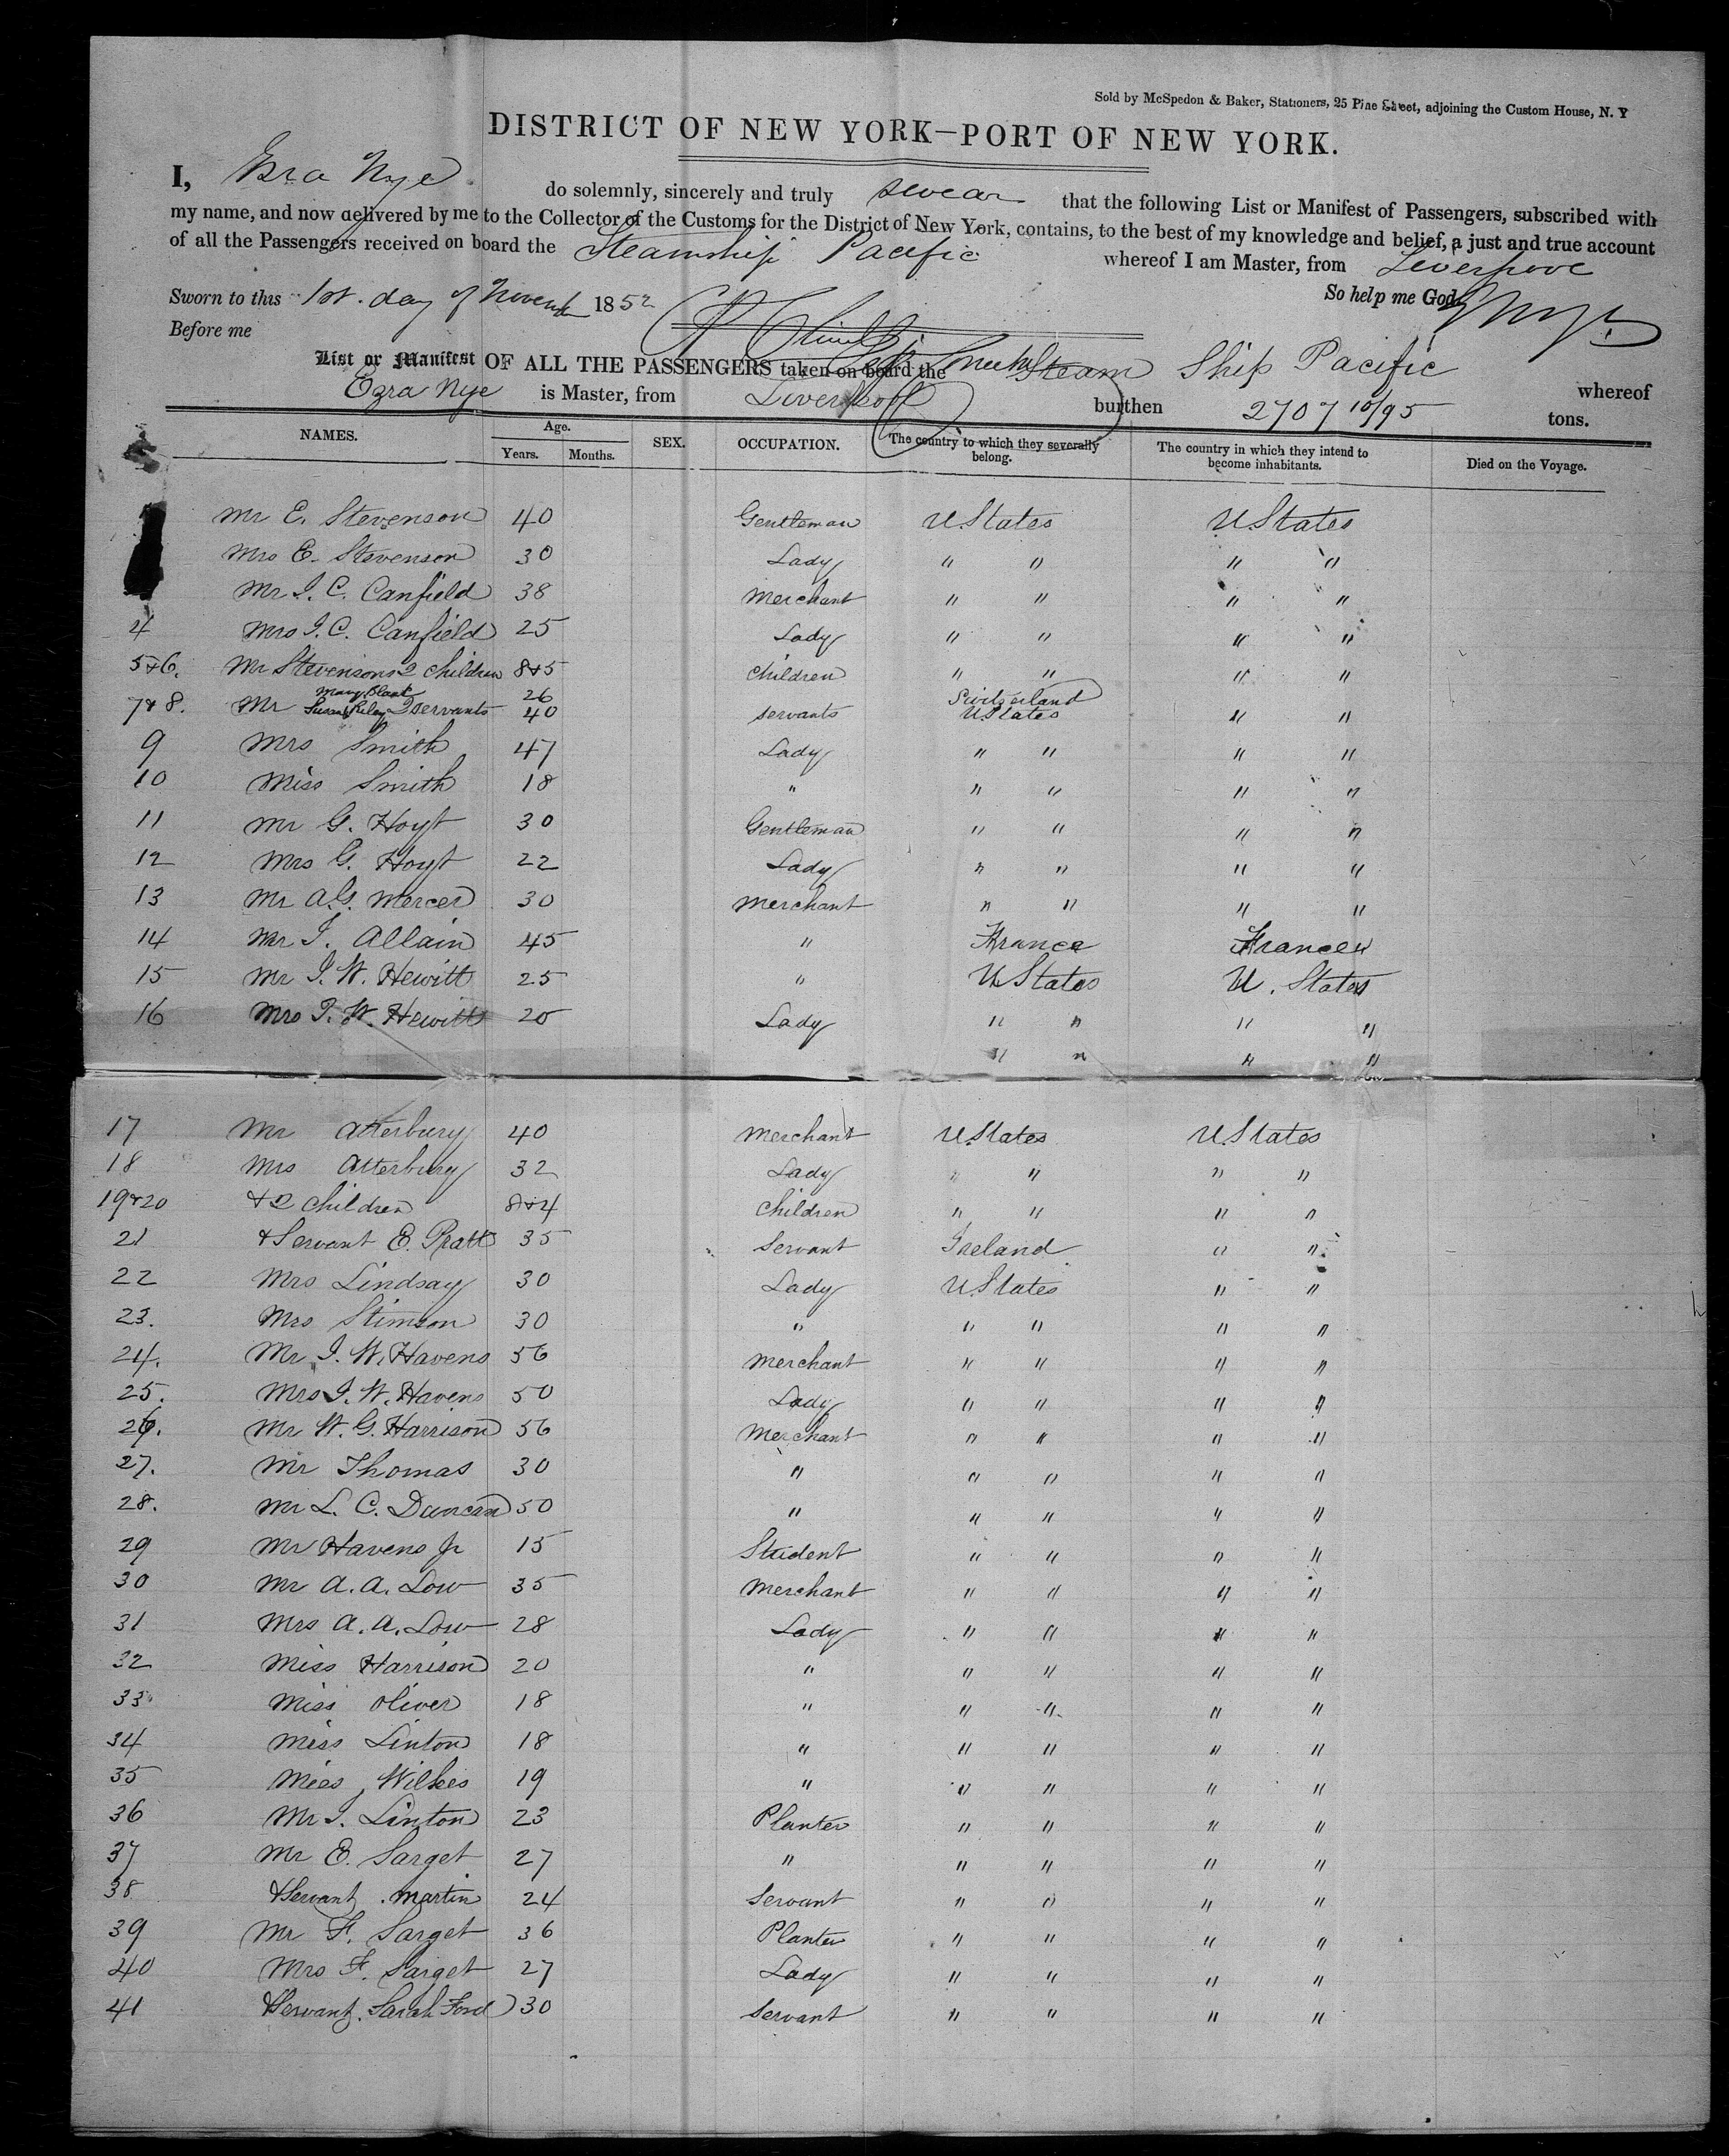 Sold by McSpedon & Baker, Stationers, 25 Pine Street, adjoining the Custom House, N. Y
DISTRICT OF NEW YORK—PORT OF NEW YORK.
I, Ezra Nye do solemnly, sincerely and truly swear that the following List or Manifest of Passengers, subscribed with
my name, and now delivered by me to the Collector of the Customs for the District of New York, contains, to the best of my knowledge and belief, a just and true account
of all the Passengers received on board the Steamship Pacific whereof I am Master, from Liverpool
Sworn to this 1st. day of Novemb 1852 So help me God. E Nye
Before me
List or Manifest OF ALL THE PASSENGERS taken on board the Steam Ship Pacific whereof
Ezra Nye is Master, from Liverpool burthen 2707 10/95 tons.
NAMES. Age. Years. Months. SEX. OCCUPATION. The country to which they severally belong. The country in which they intend to become inhabitants. Died on the Voyage.
Mr E. Stevenson 40 Gentleman UStates UStates
Mrs E. Stevenson 30 Lady " " " "
Mr I. C. Canfield 38 Merchant " " " "
4 Mrs I. C. Canfield 25 Lady " " " "
5+6. Mr Stevensons 2 children 8+5 Children " " " "
Mary Blank 26 Switzerland
7+8. Mr Susan Riley 2 servants 40 servants UStates " "
9 Mrs Smith 47 Lady " " " "
10 Miss Smith 18 " " " " "
11 Mr G. Hoyt 30 Gentleman " " " "
12 Mrs G. Hoyt 22 Lady " " " "
13 Mr A.G. Mercer 30 Merchant " " " "
14 Mr I. Allain 45 " France France
15 Mr I. W. Hewitt 25 " UStates U. States
16 Mrs I. W. Hewitt 20 Lady " " " "
" " " "
17 Mr Atterbury 40 Merchant UStates UStates
18 Mrs Atterbury 32 Lady " " " "
19+20 + 2 children 8+4 Children " " " "
21 + Servant E. Pratt 35 Servant Ireland " "
22 Mrs Lindsay 30 Lady UStates " "
23. Mrs Stimson 30 " " " " "
24. Mr I. W. Havens 56 Merchant " " " "
25. Mrs I. W. Havens 50 Lady " " " "
26. Mr W. G. Harrison 56 Merchant " " " "
27. Mr Thomas 30 " " " " "
28. Mr L. C. Duncan 50 " " " " "
29 Mr Havens Jr 15 Student " " " "
30 Mr A. A. Low 35 Merchant " " " "
31 Mrs A. A. Low 28 Lady " " " "
32 Miss Harrison 20 " " " " "
33 Miss Oliver 18 " " " " "
34 Miss Linton 18 " " " " "
35 Miss Wilkes 19 " " " " "
36 Mr I. Linton 23 Planter " " " "
37 Mr E. Sarget 27 " " " " "
38 + Servant . Martin 24 Servant " " " "
39 Mr F. Sarget 36 Planter " " " "
40 Mrs F. Sarget 27 Lady " " " "
41 + Servant. Sarah Ford 30 Servant " " " "